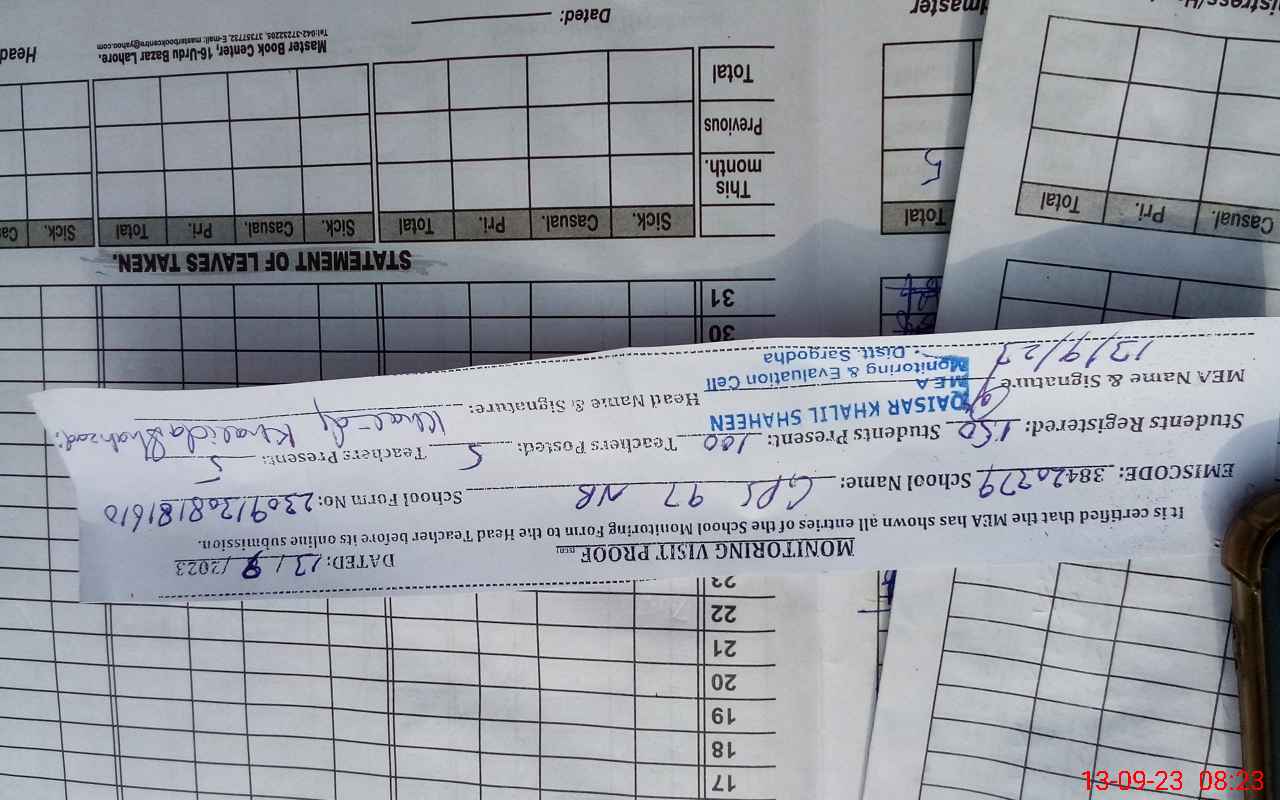 MONITORING VISIT PROOF
DATED: 13/9/2023
It is certified that the MEA has shown all entries of the School Monitoring Form to the Head Teacher before its online submission.
EMISCODE: 38420379 School Name: GPS 97 NB School Form No: 23091308181610
Students Registered: 150 Students Present: 100 Teachers Posted: 5 Teachers Present: 5
MEA Name & Signature Head Name & Signature: Khalida Shahzadi
13/9/23
QAISAR KHALIL SHAHEEN
MEA
Monitoring & Evaluation Cell
Distt. Sargodha
17
18
19
20
21
22
23
30
31
STATEMENT OF LEAVES TAKEN.
Sick. Casual. Pri. Total Sick. Casual. Pri. Total Sick.
This month.
Previous
Total
Master Book Center, 16-Urdu Bazar Lahore.
Tel:042-37232205, 37357732, E-mail: masterbookcentre@yahoo.com
Dated:
Head
Total
5
Casual. Pri. Total
13-09-23 08:23